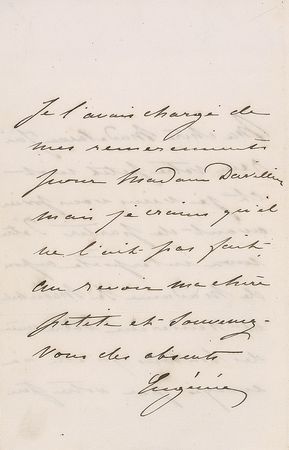 Je l'avais chargé de
mes remerciements
pour Madame Davillier
mais je crains qu'il
ne l'ait pas fait
au revoir ma chère
petite et souvenez-
vous des absents
Eugénie